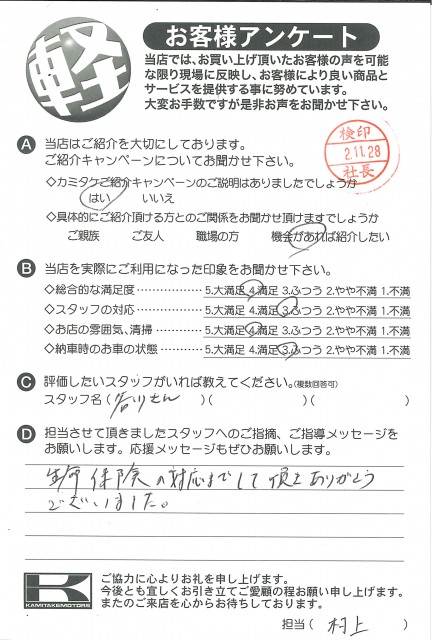 軽
お客様アンケート
当店では、お買い上げ頂いたお客様の声を可能
な限り現場に反映し、お客様により良い商品と
サービスを提供する事に努めています。
大変お手数ですが是非お声をお聞かせ下さい。
検印
2.11.28
社長
A 当店はご紹介を大切にしております。
ご紹介キャンペーンについてお聞かせ下さい。
◇カミタケご紹介キャンペーンのご説明はありましたでしょうか
はい いいえ
◇具体的にご紹介頂ける方とのご関係をお聞かせ頂けますでしょうか
ご親族 ご友人 職場の方 機会があれば紹介したい
B 当店を実際にご利用になった印象をお聞かせ下さい。
◇総合的な満足度 5.大満足 4.満足 3.ふつう 2.やや不満 1.不満
◇スタッフの対応 5.大満足 4.満足 3.ふつう 2.やや不満 1.不満
◇お店の雰囲気、清掃 5.大満足 4.満足 3.ふつう 2.やや不満 1.不満
◇納車時のお車の状態 5.大満足 4.満足 3.ふつう 2.やや不満 1.不満
C 評価したいスタッフがいれば教えてください。(複数回答可)
スタッフ名( さん )( )( )
D 担当させて頂きましたスタッフへのご指摘、ご指導メッセージを
お願いします。応援メッセージもぜひお願いします。
保険の対応までして頂きありがとう
ございました。
K
KAMITAKEMOTORS
ご協力に心よりお礼を申し上げます。
今後とも宜しくお引き立てご愛顧の程お願い申し上げます。
またのご来店を心からお待ちしております。
担当( 村上 )